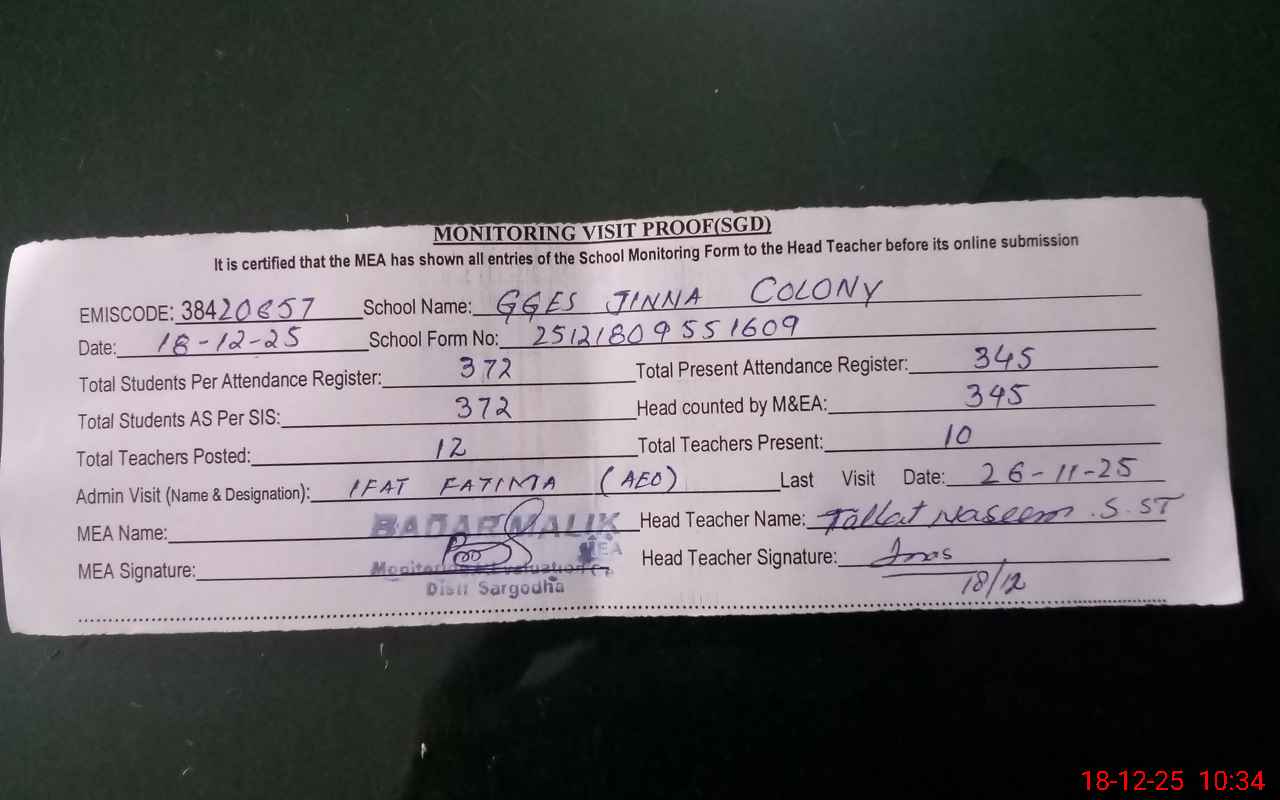 MONITORING VISIT PROOF(SGD)
It is certified that the MEA has shown all entries of the School Monitoring Form to the Head Teacher before its online submission
EMISCODE: 38420657 School Name: GGES JINNA COLONY
Date: 18-12-25 School Form No: 25121809551609
Total Students Per Attendance Register: 372 Total Present Attendance Register: 345
Total Students AS Per SIS: 372 Head counted by M&EA: 345
Total Teachers Posted: 12 Total Teachers Present: 10
Admin Visit (Name & Designation): IFAT FATIMA (AEO) Last Visit Date: 26-11-25
MEA Name: BADAR MALIK Head Teacher Name: Tallat Naseem .S.ST
MEA
MEA Signature: Monitoring & Evaluation Head Teacher Signature:
Distt Sargodha 18/12
18-12-25 10:34